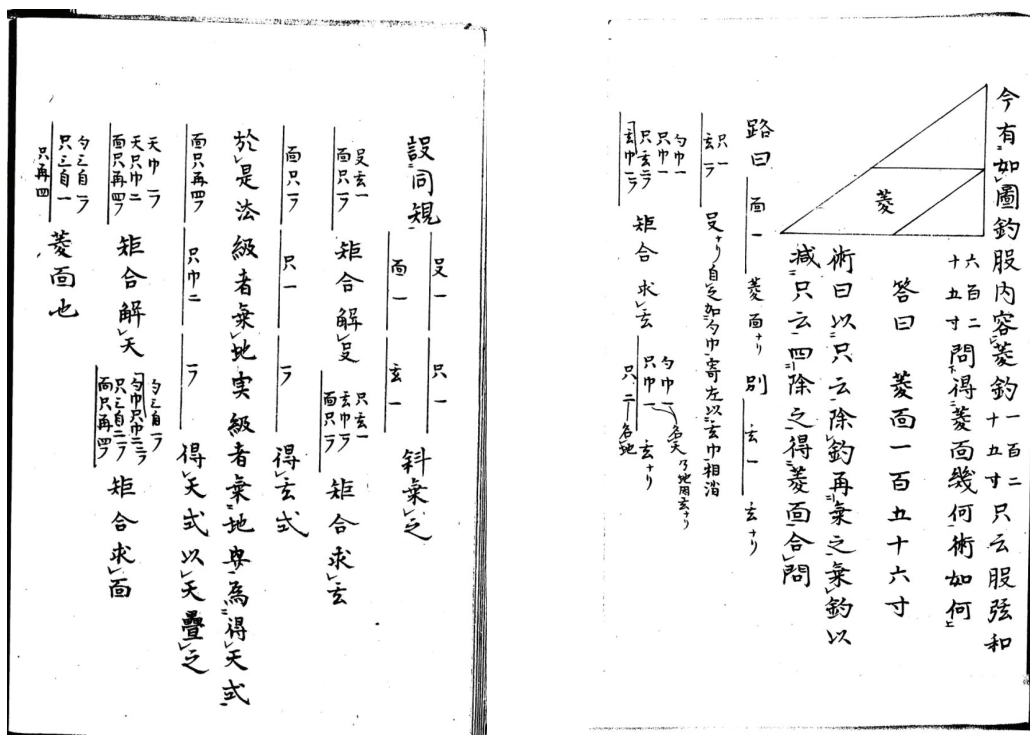 今有如圖釣股内容菱釣一百二十五寸只云股弦和
六百二十五寸問得菱面幾何術如何
答曰 菱面一百五十六寸
菱
術曰以只云除釣再乗之乗釣以
減只云四除之得菱面合問
路曰 面一 菱面ナリ 別 玄一 玄ナリ
只一 玄一 股ナリ自之加勾巾寄左以玄巾相消
勾巾一 只巾一 只玄二 玄巾一 矩合求玄 勾巾一 只巾一 名天 只二 名地 玄ナリ
設同規 股一 面一 只一 玄一 斜乗之
股玄一 面只一 矩合解股 只玄一 玄巾一 面只一 矩合求玄
面只一 只一 得玄式
於是法級者乗地実級者乗地 為得天式
面只再四 只巾二 得天式以天疊之
天巾一 天只巾二 面只再四 矩合解天 勾三自一 勾巾只巾二 只三自一 面只再四 矩合求面
勾三自一 只三自一 只再四 菱面也